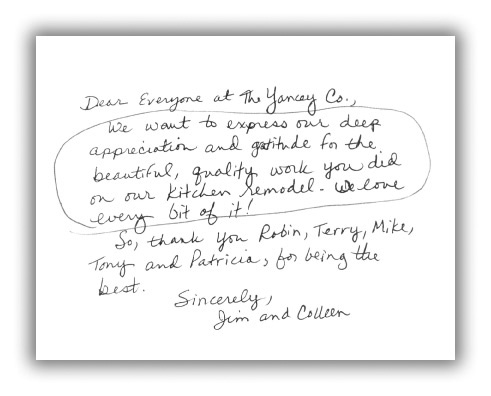 Dear Everyone at The Yancey Co.,
We want to express our deep
appreciation and gratitude for the
beautiful, quality work you did
on our kitchen remodel. We love
every bit of it!
So, thank you Robin, Terry, Mike,
Tony and Patricia, for being the
best.
Sincerely,
Jim and Colleen